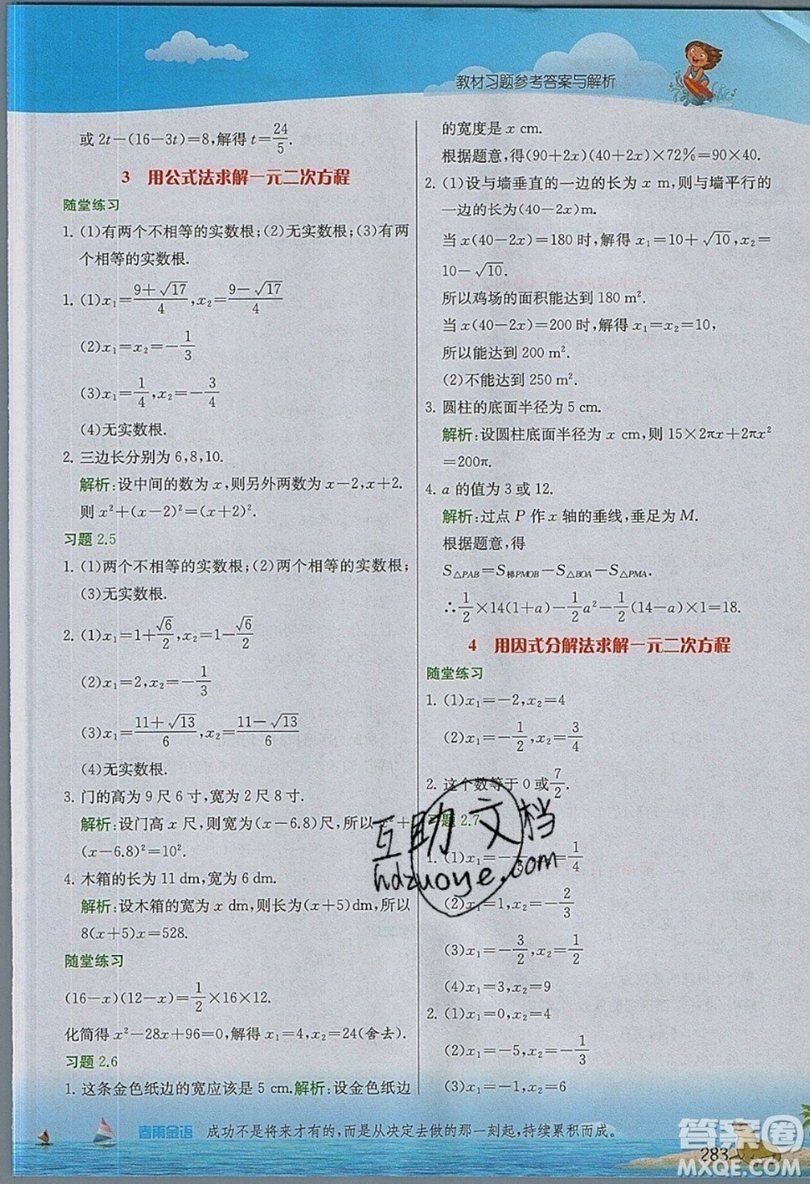 教材习题参考答案与解析
或 2t-(16-3t)=8,解得 t=24/5.
3 用公式法求解一元二次方程
随堂练习
1. (1)有两个不相等的实数根;(2)无实数根;(3)有两
个相等的实数根.
1. (1)x₁=(9+√17)/4,x₂=(9-√17)/4
(2)x₁=x₂=-1/3
(3)x₁=1/4,x₂=-3/4
(4)无实数根.
2. 三边长分别为 6,8,10.
解析:设中间的数为 x,则另外两数为 x-2,x+2.
则 x²+(x-2)²=(x+2)².
习题 2.5
1. (1)两个不相等的实数根;(2)两个相等的实数根;
(3)无实数根.
2. (1)x₁=1+√6/2,x₂=1-√6/2
(2)x₁=2,x₂=-1/3
(3)x₁=(11+√13)/6,x₂=(11-√13)/6
(4)无实数根.
3. 门的高为 9 尺 6 寸,宽为 2 尺 8 寸.
解析:设门高 x 尺,则宽为(x-6.8)尺,所以 x²+
(x-6.8)²=10².
4. 木箱的长为 11 dm,宽为 6 dm.
解析:设木箱的宽为 x dm,则长为(x+5)dm,所以
8(x+5)x=528.
随堂练习
(16-x)(12-x)=1/2×16×12.
化简得 x²-28x+96=0,解得 x₁=4,x₂=24(舍去).
习题 2.6
1. 这条金色纸边的宽应该是 5 cm.解析:设金色纸边
的宽度是 x cm.
根据题意,得(90+2x)(40+2x)×72%=90×40.
2. (1)设与墙垂直的一边的长为 x m,则与墙平行的
一边的长为(40-2x)m.
当 x(40-2x)=180 时,解得 x₁=10+√10,x₂=
10-√10.
所以鸡场的面积能达到 180 m².
当 x(40-2x)=200 时,解得 x₁=x₂=10,
所以能达到 200 m².
(2)不能达到 250 m².
3. 圆柱的底面半径为 5 cm.
解析:设圆柱底面半径为 x cm,则 15×2πx+2πx²
=200π.
4. a 的值为 3 或 12.
解析:过点 P 作 x 轴的垂线,垂足为 M.
根据题意,得
S△PAB=S梯PMOB-S△BOA-S△PMA.
∴1/2×14(1+a)-1/2a²-1/2(14-a)×1=18.
4 用因式分解法求解一元二次方程
随堂练习
1. (1)x₁=-2,x₂=4
(2)x₁=-1/2,x₂=3/4
2. 这个数等于 0 或 7/2.
习题 2.7
1. (1)x₁=- 1/4
(2)x₁=1,x₂=-2/3
(3)x₁=-3/2,x₂=1/2
(4)x₁=3,x₂=9
2. (1)x₁=0,x₂=4
(2)x₁=-5,x₂=-1/3
(3)x₁=-1,x₂=6
互助文档
hdzuoye.com
春雨金语 成功不是将来才有的,而是从决定去做的那一刻起,持续累积而成。
283
答案圈
MXQE.COM